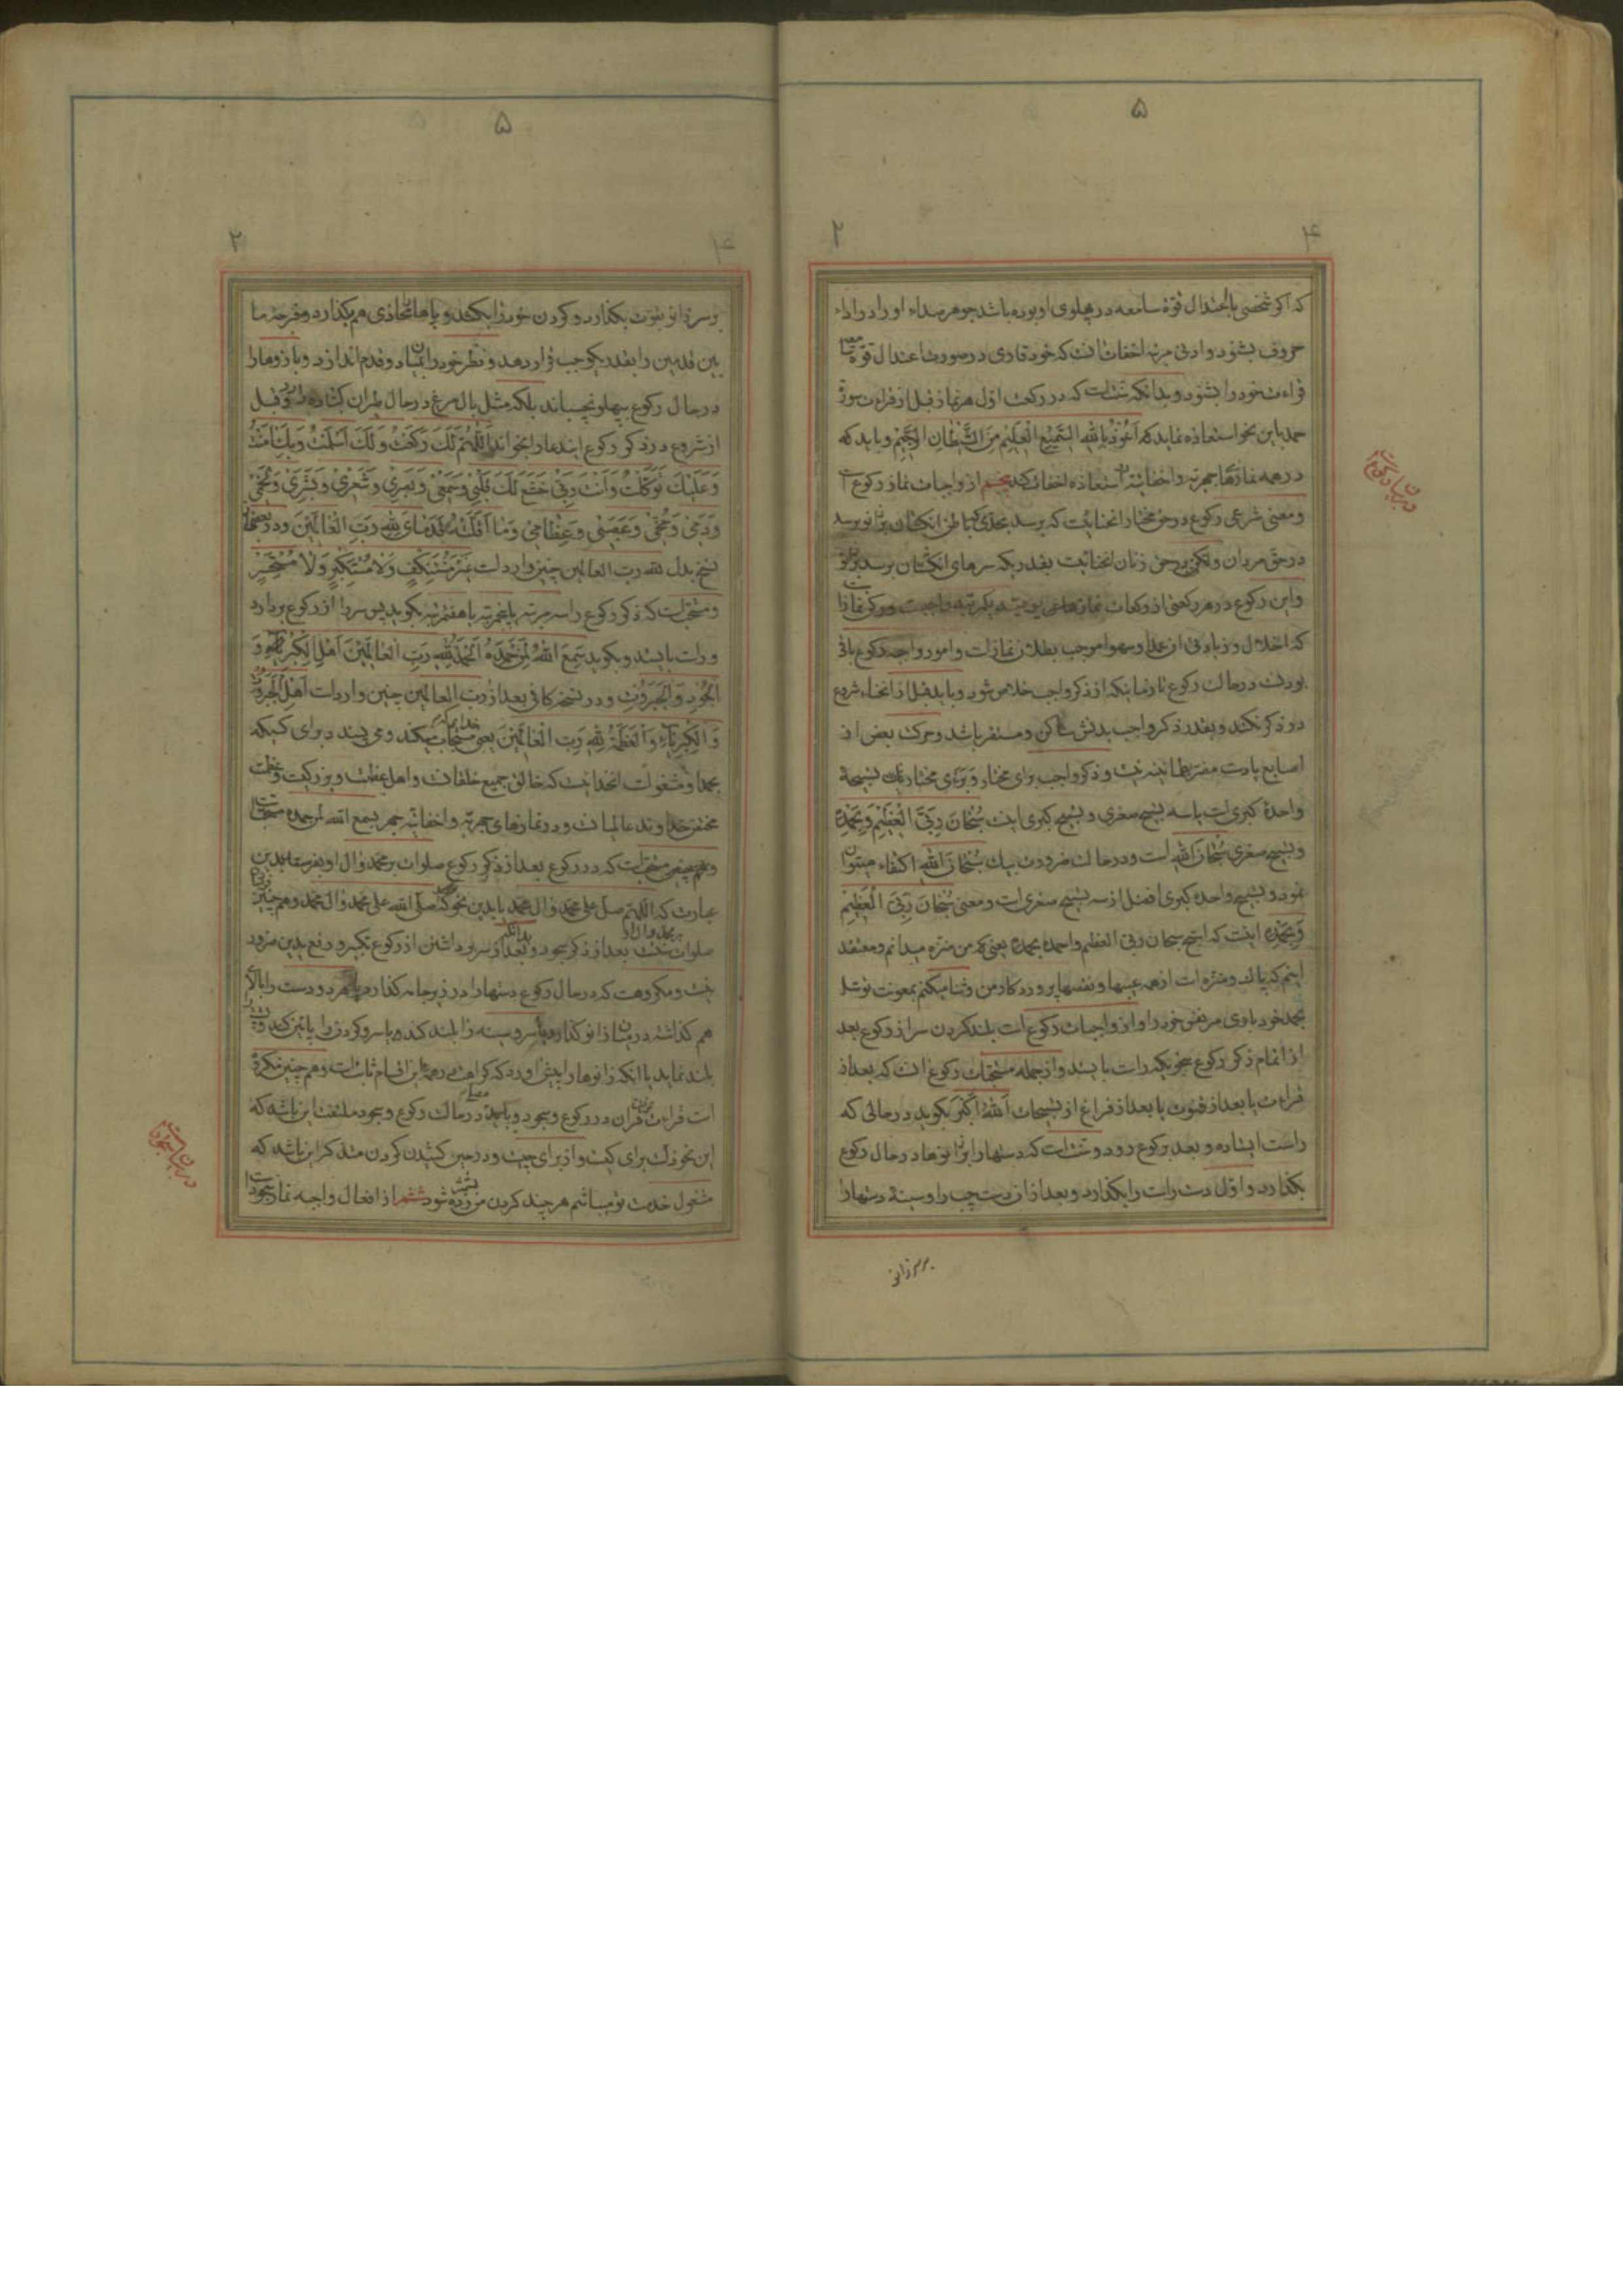 ۵
۴ ۲
که اکر شخصی باعتدال قوة سامعه در پهلوی او بوده باشد جوهر صداء او را در اداء
حروف بشنود و ادنی مرتبه اخفات انست که خود قاری در صورت اعتدال قوة سامعه
قراءت خود را بشنود و بدانکه سنت است که در رکعت اول هر نماز قبل از قراءت سورة
حمد باین نحو استعاذه نماید که اَعُوذُ بِاللهِ السَّمیعِ الْعَلیمِ مِنَ الشَّیْطانِ الرَّجیمِ و باید که
در همه نمازها جهریه و اخفاتیه استعاذه اخفات کند پنجم از واجبات نماز رکوع است
و معنی شرعی رکوع در حق مختار انحنائیست که برسد بحدی که باطن انکشتان بزانو برسد
در حق مردان ولکن در حق زنان انحنائیست بقدریکه سرهای انکشتان برسد بزانو
و این رکوع در هر رکعتی از رکعات نمازهای یومیه یکمرتبه واجبست و رکن نماز است
که اخلال و زیادتی ان عمدا و سهوا موجب بطلان نماز است و امور واجبه رکوع باقی
بودنست در حالت رکوع تا زمانیکه از ذکر واجب خلاص شود و باید قبل از انحناء شروع
در ذکر نکند و بقدر ذکر واجب بدنش ساکن و مستقر باشد و حرکت بعض از
اصابع یا دست مضر بطمانینه نیست و ذکر واجب برای مختار و برای مختار یک تسبیحة
واحدة کبری است یا سه تسبیح صغری و تسبیح کبری اینست سُبْحانَ رَبِّیَ الْعَظیمِ وَ بِحَمْدِهِ
و تسبیح صغری سُبْحانَ اللهِ است و در حالت ضرورت بیک سُبْحانَ اللهِ اکتفاء میتوان
نمود و تسبیح واحده کبری افضل از سه تسبیح صغری است و معنی سُبْحانَ رَبِّیَ الْعَظیمِ
وَ بِحَمْدِهِ اینست که اسبح سبحان ربی العظیم و احمده بحمده یعنی که من منزه میدانم و معتقد
اینم که پاک و منزه است از همه عیبها و نقصها پروردکار من و ثنا میکنم بمعونت توسل
بحمد خود باوی مر نفس خود را و از واجبات رکوع است بلند کردن سر از رکوع بعد
از اتمام ذکر رکوع بنحویکه راست بایستد و از جمله مستحبات رکوع انست که بعد از
قراءت یا بعد از قنوت یا بعد از فراغ از تسبیحات اَللهُ اَکْبَرُ بکوید در حالتی که
راست ایستاده و بعد برکوع رود و سنت است که دستها را بزانوها در حال رکوع
بکذارد و اول دست راست را بکذارد و بعد از ان دست چپ را و سینه دستها را
بر سر زانی
در بیان رکوع است
۵
۴ ۲
بر سر زانو بقوت بکذارد و کردن خود را بکشد و پاها را محاذی هم بکذارد و فرجه ما
بین قدمین را بقدر یکوجب قرار دهد و نظر خود را بمیان دو قدم اندازد و بازوها را
در حال رکوع بپهلو نچسباند بلکه مثل بال مرغ در حال طیران کشاده دارد و قبل
از شروع در ذکر رکوع ایندعا را بخواند اَللّهُمَّ لَکَ رَکَعْتُ وَ لَکَ اَسْلَمْتُ وَ بِکَ آمَنْتُ
وَ عَلَیْکَ تَوَکَّلْتُ وَ اَنْتَ رَبّی خَشَعَ لَکَ قَلْبی وَ سَمْعی وَ بَصَری وَ شَعْری وَ بَشَری وَ لَحْمی
وَ دَمی وَ مُخّی وَ عَصَبی وَ عِظامی وَ ما اَقَلَّتْهُ قَدَمایَ لِلّهِ رَبِّ الْعالَمینَ و در بعضی
نسخ بدل لله رب العالمین چنین وارد است غَیْرَ مُسْتَنْکِفٍ وَ لا مُسْتَکْبِرٍ وَ لا مُسْتَحْسِرٍ
و مستحب است که ذکر رکوع را سه مرتبه یا پنجمرتبه یا هفتمرتبه بکوید پس سر را از رکوع بردارد
و راست بایستد و بکوید سَمِعَ اللهُ لِمَنْ حَمِدَهُ اَلْحَمْدُ لِلّهِ رَبِّ الْعالَمینَ اَهْلِ الْکِبْرِیاءِ وَ
الْجُودِ وَ الْجَبَرُوتِ و در نسخه کافی بعد از رب العالمین چنین وارد است اَهْلِ الْجَبَرُوتِ
وَ الْکِبْرِیاءِ وَ الْعَظَمَةُ لِلّهِ رَبِّ الْعالَمینَ یعنی مستجاب میکند خدا و می پسندد برای کسیکه
بحمد او مشغولست انخدائیست که خالق جمیع خلقانست و اهل عظمت و بزرکیست و عظمت
مختص خداوند عالمیانست و در نمازهای جهریه و اخفاتیه جهر بسمع الله لمن حمده مستحب است
و هم چنین مستحب است که در رکوع بعد از ذکر رکوع صلوات بر محمد و ال او بفرستد بدین
عبارت که اللهم صل علی محمد و ال محمد یا بدین نحو که صلی الله علی محمد و ال محمد و هم چنین
صلوات بر محمد و ال او سنت بعد از ذکر سجود و بدانکه بعد از سر برداشتن از رکوع تکبیر و رفع یدین ضرور
نیست و مکروهست که در حال رکوع دستها را در زیر جامه کذارد یا هر دو دست را بالای
هم کذاشته در میان زانو کذارد یا سر و سینه را بلند کند یا سر و کردن را پائین کند و پشت را
بلند نماید یا انکه زانوها را پیش اورد که کراهت در همه این اقسام ثابت است و هم چنین مکروه
است قراءت قران در رکوع و سجود و باید مصلی در حالت رکوع و سجود ملتفت این باشد که
این تخوذلت برای کیست و از برای چیست و در حین کشیدن کردن متذکر این باشد که
مشغول خدمت تو میباشم هر چند کردن من زده شود ششم از افعال واجبه نماز سجود است
در بیان سجود است